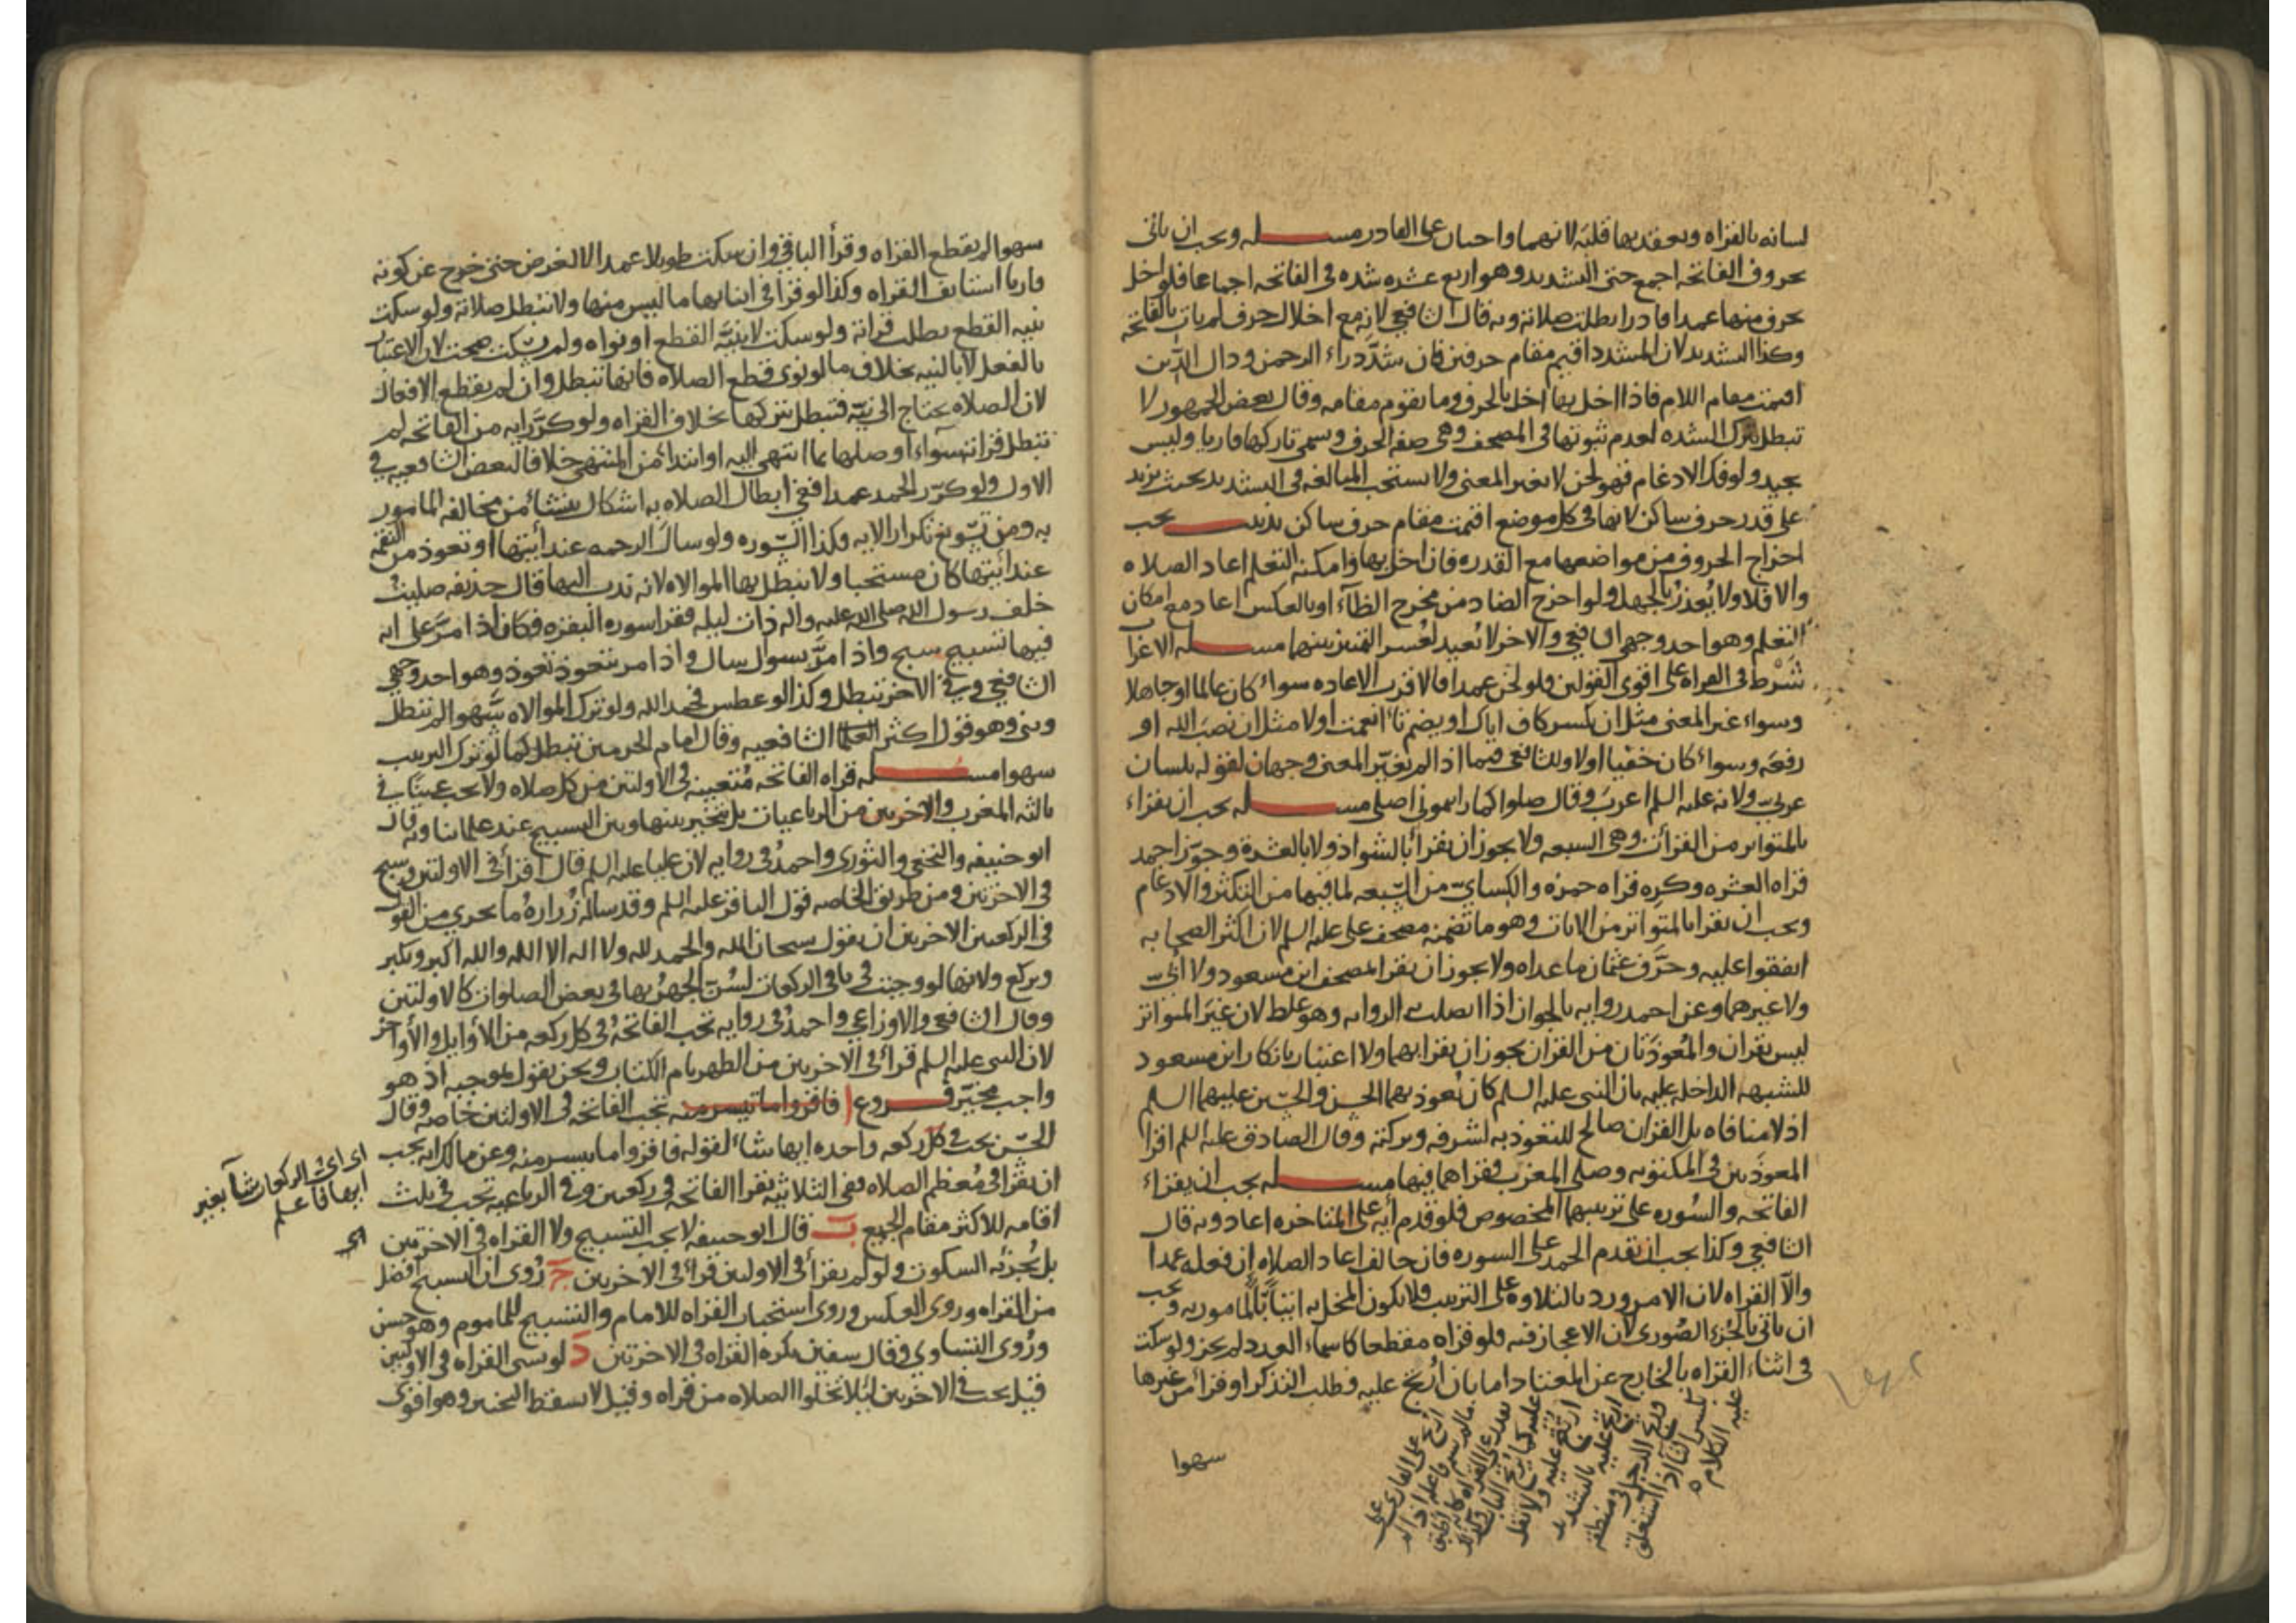 لسانه بالقراه ويعقد بها قلبه لانهما واجبان على القادر مسله ويجب ان ياتى
بحروف الفاتحه اجمع حتى التشديد وهو اربع عشره شده فى الفاتحه اجماعا فلو اخل
بحرف منها عمدا قادرا بطلت صلاته وبه قال الشافعى لانه مع اخلال حرف لم يات بالفاتحه
وكذا التشديد لان المشدد اقيم مقام حرفين فان شدّد راء الرحمن ودال الدّين
اقيمت مقام اللام فاذا اخل بها اخل بالحرف وما يقوم مقامه وقال بعض الجمهور لا
تبطل بترك الشده لعدم ثبوتها فى المصحف وهى صفه الحرف وسمى تاركها قاريا وليس
بجيد ولو فك الادغام فهو لحن لا يغير المعنى ولا يستحب المبالغه فى التشديد بحيث يزيد
على قدر حرف ساكن لانها فى كل موضع اقيمت مقام حرف ساكن يجب
اخراج الحروف من مواضعها مع القدره فان اخل بها وامكنه التعلم اعاد الصلاه
والا فلا ولا يُعذر بالجهل ولو اخرج الضاد من مخرج الظآء او بالعكس اعاد مع امكان
التعلم وهو احد وجهى الشافعى والاخر لا يعيد لعُسر التميز بينهما مسله الاعراب
شرط فى القراه على اقوى القولين فلو لحن عمدا فالاقرب الاعاده سواء كان عالما او جاهلا
وسواء غير المعنى مثل ان يكسر كاف اياك او يضم تاء انعمت او لا مثل ان نصب الله او
رفعه وسواء كان خفيا او لا وللشافعى فيما اذا لم يغيّر المعنى وجهان لقوله بلسان
عربىّ ولانه عليه السلم اعرب وقال صلوا كما رايتمونى اصلى مسله يجب ان يقراء
بالمتواتر من القراآت وهى السبعه ولا يجوز ان يقرأ بالشواذ ولا بالعشرة وجوّز احمد
قراه العشره وكره قراه حمزه والكسايىّ من السّبعه لما فيها من التكثر والادغام
ويجب ان يقرا بالمتواتر من الايات وهو ما تضمنه مصحف على عليه السلم لان اكثر الصحابه
اتفقوا عليه وحرَّق عثمان ما عداه ولا يجوز ان يقرا مصحف ابن مسعود ولا ابىّ
ولا غيرهما وعن احمد روايه بالجواز اذا اتصلت به الروايه وهو غلط لان غير المتواتر
ليس بقران والمُعوذتان من القران يجوز ان يقرا بهما ولا اعتبار بانكار ابن مسعود
للشبهه الداخله عليه بان النبى عليه السلم كان يُعوذ بهما الحسن والحسين عليهما السلم
اذ لا منافاه بل القران صالح للتعوذ به لشرفه وبركته وقال الصادق عليه السلم اقرا
المعوذتين فى المكتوبه وصلى المغرب فقراهما فيها مسله يجب ان يقراء
الفاتحه والسُوره على ترتيبهما المخصوص فلو قدم أيه على المتاخره اعاد وبه قال
الشافعى وكذا يجب ان يقدم الحمد على السوره فان خالف اعاد الصلاه ان فعله عمدا
والّا القراه لان الامر ورد بالتلاوه على الترتيب فلا يكون المخل به اتيًا بالمامور به ويجب
ان ياتى بالجُزء الصُورى لان الاعجاز فيه ولو قراه مقطعا كاسماء العدد لم يجز ولو سكت
فى اثناء القراه بالخارج عن المعتاد اما بان اُرتج عليه فطلب التذكر او قرأ من غيرها
سهوا
سهوا لم يقطع القراه وقرأ الباقى وان سكت طويلا عمدا لا لغرض حتى خرج عن كونه
قاريا استانف القراه وكذا لو قرأ فى اثنائها ما ليس منها ولا تبطل صلاته ولو سكت
بنيه القطع بطلت قراته ولو سكت لا بنيّه القطع او نواه ولم يسكت صحت لان الاعتبار
بالفعل لا بالنيه بخلاف ما لو نوى قطع الصلاه فانها تبطل وان لم يقطع الافعال
لان الصلاه يحتاج الى نيّه فتبطل بتركها بخلاف القراه ولو كرّر ايه من الفاتحه لم
تبطل قراته سوآء أوصلها بما انتهى اليه او ابتدأ من المنتهى خلافا لبعض الشافعيه فى
الاول ولو كرّر الحمد عمدا ففى ابطال الصلاه به اشكال ينشا من مخالفه المامور
به ومن تسويغ تكرار الايه وكذا السّوره ولو سال الرحمه عند أيتها او تعوذ من النقمه
عند أيتها كان مستحبا ولا يبطل بها الموالاه لانه ندب اليها قال حذيفه صليت
خلف رسول الله صلى الله عليه واله ذات ليله فقرا سوره البقره فكان اذا مرَّ على ايه
فيها تسبيح سبح واذا مرَّ بسوال سال واذا مر بتعوذ تعوذ وهو احد وجهى
الشافعى وفى الاخر تبطل وكذا لو عطس فحمد الله ولو ترك الموالاه سهوا لم تبطل
وبنى وهو قول اكثر العلما الشافعيه وقال امام الحرمين تبطل كما لو ترك الترتيب
سهوا مسله قراه الفاتحه مُتعينه فى الاولتين من كل صلاه ولا يجب عينًا فى
ثالثه المغرب والاخرتين من الرباعيات بل يتخير بينها وبين التسبيح عند علمائنا وبه قال
ابو حنيفه والنخعى والثورى واحمد فى روايه لان عليا عليه السلم قال اقرأ فى الاولتين وسبح
فى الاخرتين ومن طريق الخاصه قول الباقر عليه السلم وقد ساله زُراره ما يجزى من القول
فى الركعتين الاخرتين ان يقول سبحان الله والحمد لله ولا اله الا الله والله اكبر ويكبر
ويركع ولانها لو وجبت فى باقى الركعات لسُنّ الجهرُ بها فى بعض الصلوات كالاولتين
وقال الشافعى والاوزاعى واحمدُ فى روايه تجب الفاتحهُ فى كل ركعه من الاوايل والأواخر
لان النبى عليه السلم قرأ فى الاخرتين من الظهر بام الكتاب ونحن نقول بموجبه اذ هو
واجب مخيّر فروع ا فاقروا ما تيسر منه تجب الفاتحه فى الاولتين خاصه وقال
الحسن يجب فى كل ركعه واحده ايها شاء لقوله فاقروا ما تيسر منه وعن مالك انه يجب
ان يقرا فى مُعظم الصلاه ففى الثلاثيّه يقرا الفاتحه فى ركعتين وفى الرباعيه تجب فى ثلث
اقامه للاكثر مقام الجميع ب قال ابو حنيفه لا يجب التسبيح ولا القراه فى الاخرتين
بل يُجزئه السكوت ولو لم يقرأ فى الاولتين قرأ فى الاخرتين ج رُوى ان التسبيح أفضل
من القراه وروى العكس وروى استحباب القراه للامام والتسبيح للماموم وهو حسن
ورُوى التساوى وقال سفين يكره القراه فى الاخرتين د لو نسى القراه فى الاولتين
قيل يجب فى الاخرتين لئلا تخلوا الصلاه من قراه وقيل لا يسقط التخير وهو اقوى
اى اىّ الركعات شآ بغير
ايها فاعلم